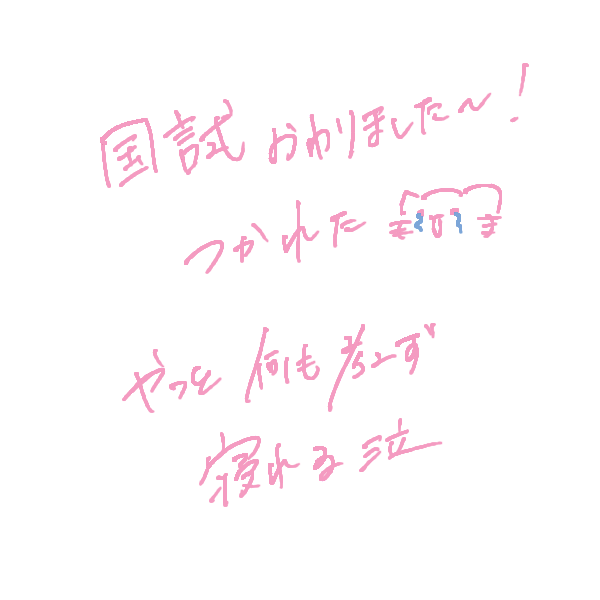 国試おわりました〜！
つかれた
やっと何も考えず
寝れる泣